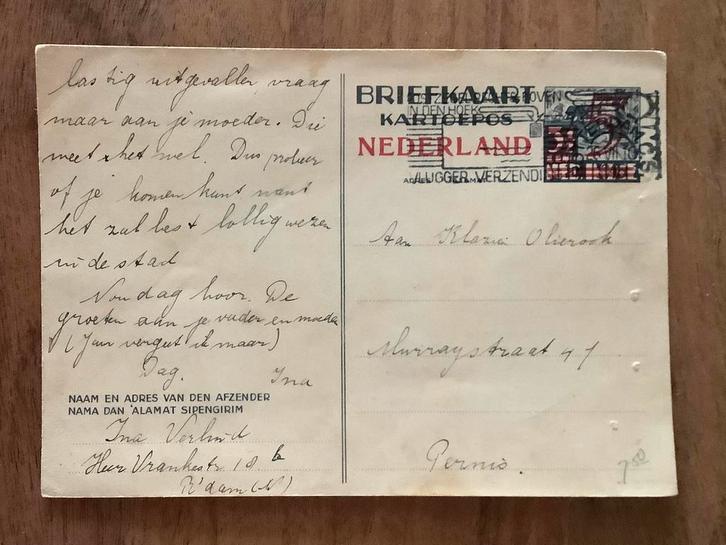 lastig uitgevallen, vraag
maar aan je moeder. Die
weet het wel. Dus probeer
of je komen kunt want
het zal best lollig wezen
in de stad
Nou dag hoor. De
groeten aan je vader en moeder
(Jan vergeet ik maar)
Dag.
Ina
NAAM EN ADRES VAN DEN AFZENDER
NAMA DAN ALAMAT SIPENGIRIM
Ina
Heer Vrankestr 18 b
R'dam (N)
BRIEFKAART
KARTOEPOS
NEDERLAND
IN DEN HOEK
VLUGGER VERZENDI
Aan Klazien Olierook
Murraystraat 41
Pernis.
7.50